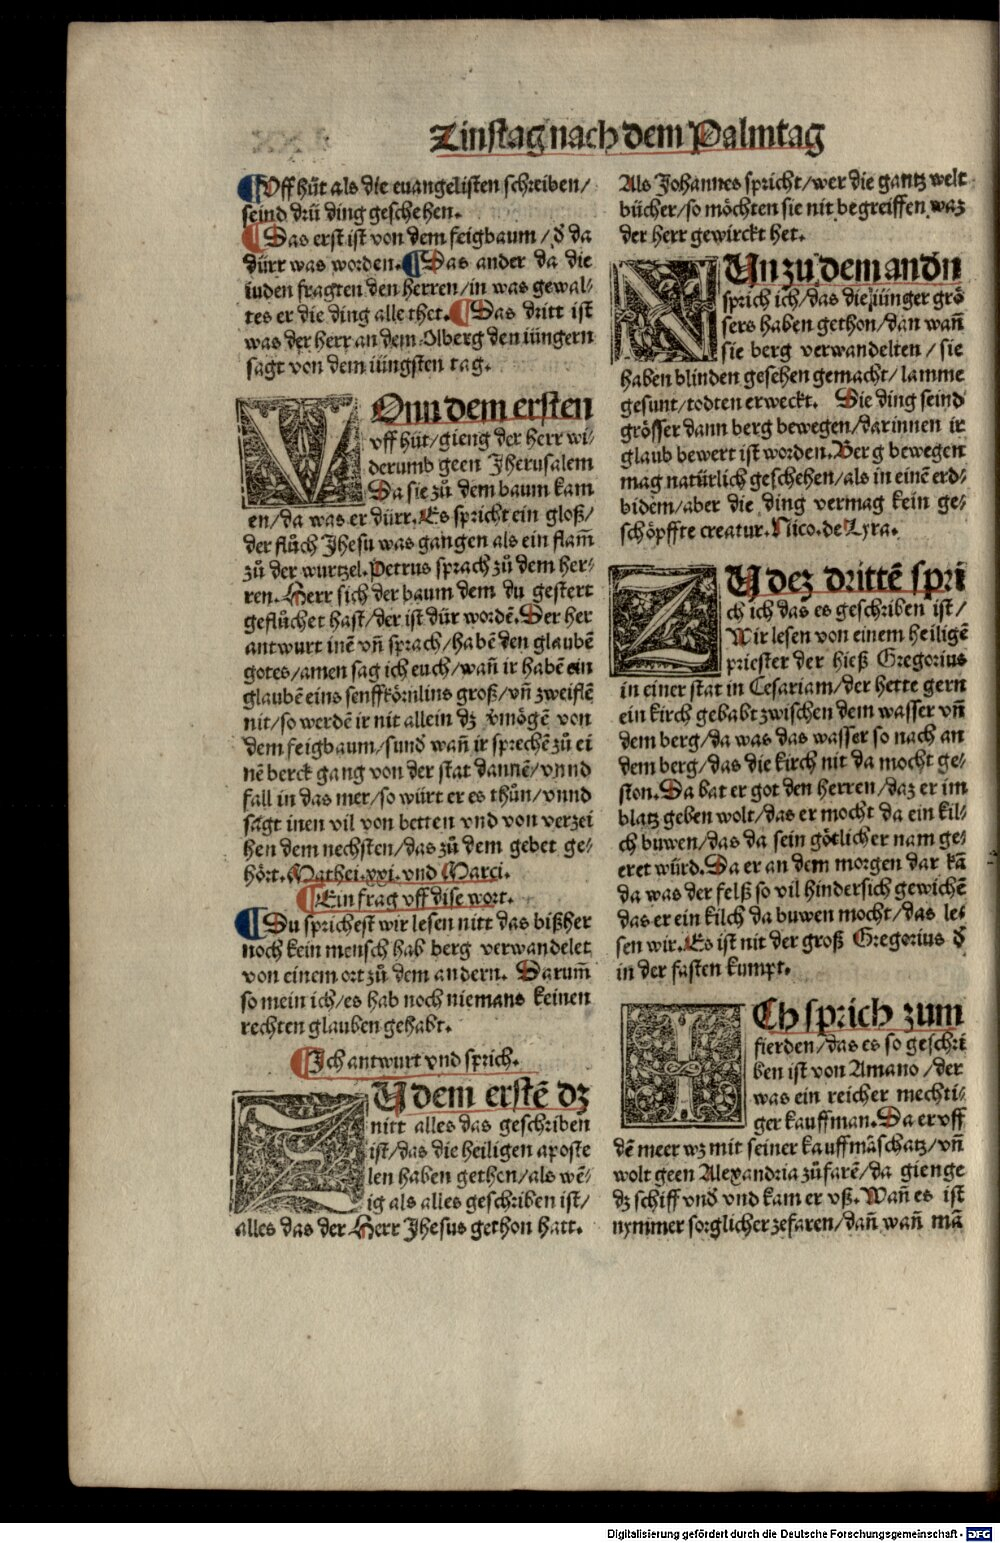 Zinstag nach dem Palmtag
¶Vff hüt als die euangelisten schreiben/
seind drü ding geschehen.
¶Das erst ist von dem feigbaum/ d̕ da
dürr was worden. ¶Das ander da die
iuden fragten den herren/in was gewal⸗
tes er die ding alle thet. ¶Das dritt ist
was der herr an dem Olberg den iüngern
sagt von dem iüngsten tag.
VOnn dem ersten
vff hüt/gieng der herr wi⸗
derumb geen Jherusalem
Da sie zů dem baum kam
en/da was er dürr. Es spricht ein gloß/
der flůch Jhesu was gangen als ein flam̄
zů der wurtzel. Petrus sprach zů dem her⸗
ren. Herr sich der baum dem du gestert
geflůchet hast/der ist dür wordē. Der her
antwurt inē vn̄ sprach/habē den glaubē
gotes/amen sag ich euch/wan̄ ir habē ein
glaubē eins senffkörnlins groß/vn̄ zweiflē
nit/so werdē ir nit allein dz v̕mögē von
dem feigbaum/sund̕ wan̄ ir sprechē zů ei
nē berck gang von der stat dannē/vnnd
fall in das mer/so würt er es thůn/vnnd
sagt inen vil von betten vnd von verzei
hen dem nechsten/das zů dem gebet ge⸗
hört. Mathei.xxi.vnd Marci.
¶Ein frag vff dise wort.
¶Du sprichest wir lesen nitt das bißher
noch kein mensch hab berg verwandelet
von einem ort zů dem andern. Darum̄
so mein ich/es hab noch niemans keinen
rechten glauben gehabt.
¶Ich antwurt vnd sprich.
ZU dem erstē dz
nitt alles das geschriben
ist/das die heiligen aposte
len haben gethon/als wē⸗
ig als alles geschriben ist/
alles das der Herr Jhesus gethon hatt.
Als Johannes spricht/wer die gantz welt
bücher/so möchten sie nit begreiffen waz
der herr gewirckt het.
NUn zů dem and̕n
sprich ich/das die iünger grö
sers haben gethon/dan wan̄
sie berg verwandelten/ sie
haben blinden gesehen gemacht/lamme
gesunt/todten erweckt. Die ding seind
grösser dann berg bewegen/darinnen ir
glaub bewert ist worden. Berg bewegen
mag natürlich geschehen/als in einē erd⸗
bidem/aber die ding vermag kein ge⸗
schöpffte creatur. Nico.de Lyra.
ZU dez drittē spri
ch ich das es geschriben ist/
Wir lesen von einem heiligē
priester der hieß Gregorius
in einer stat in Cesariam/der hette gern
ein kirch gehabt zwischen dem wasser vn̄
dem berg/da was das wasser so nach an
dem berg/das die kirch nit da mocht ge⸗
ston. Da bat er got den herren/daz er im
blatz geben wolt/das er mocht da ein kil⸗
ch buwen/das da sein götlicher nam ge⸗
eret würd. Da er an dem morgen dar kā
da was der felß so vil hindersich gewichē
das er ein kilch da buwen mocht/das le⸗
sen wir. Es ist nit der groß Gregorius d̕
in der fasten kumpt.
ICh sprich zum
fierden/das es so geschri
ben ist von Amano/der
was ein reicher mechti⸗
ger kauffman. Da er vff
dē meer wz mit seiner kauffmāschatz/vn̄
wolt geen Alexandria zůfarē/da gienge
dz schiff vnd̕ vnd kam er vß. Wan̄ es ist
nymmer sorglicher zefaren/dan̄ wan̄ mā
Digitalisierung gefördert durch die Deutsche Forschungsgemeinschaft - DFG